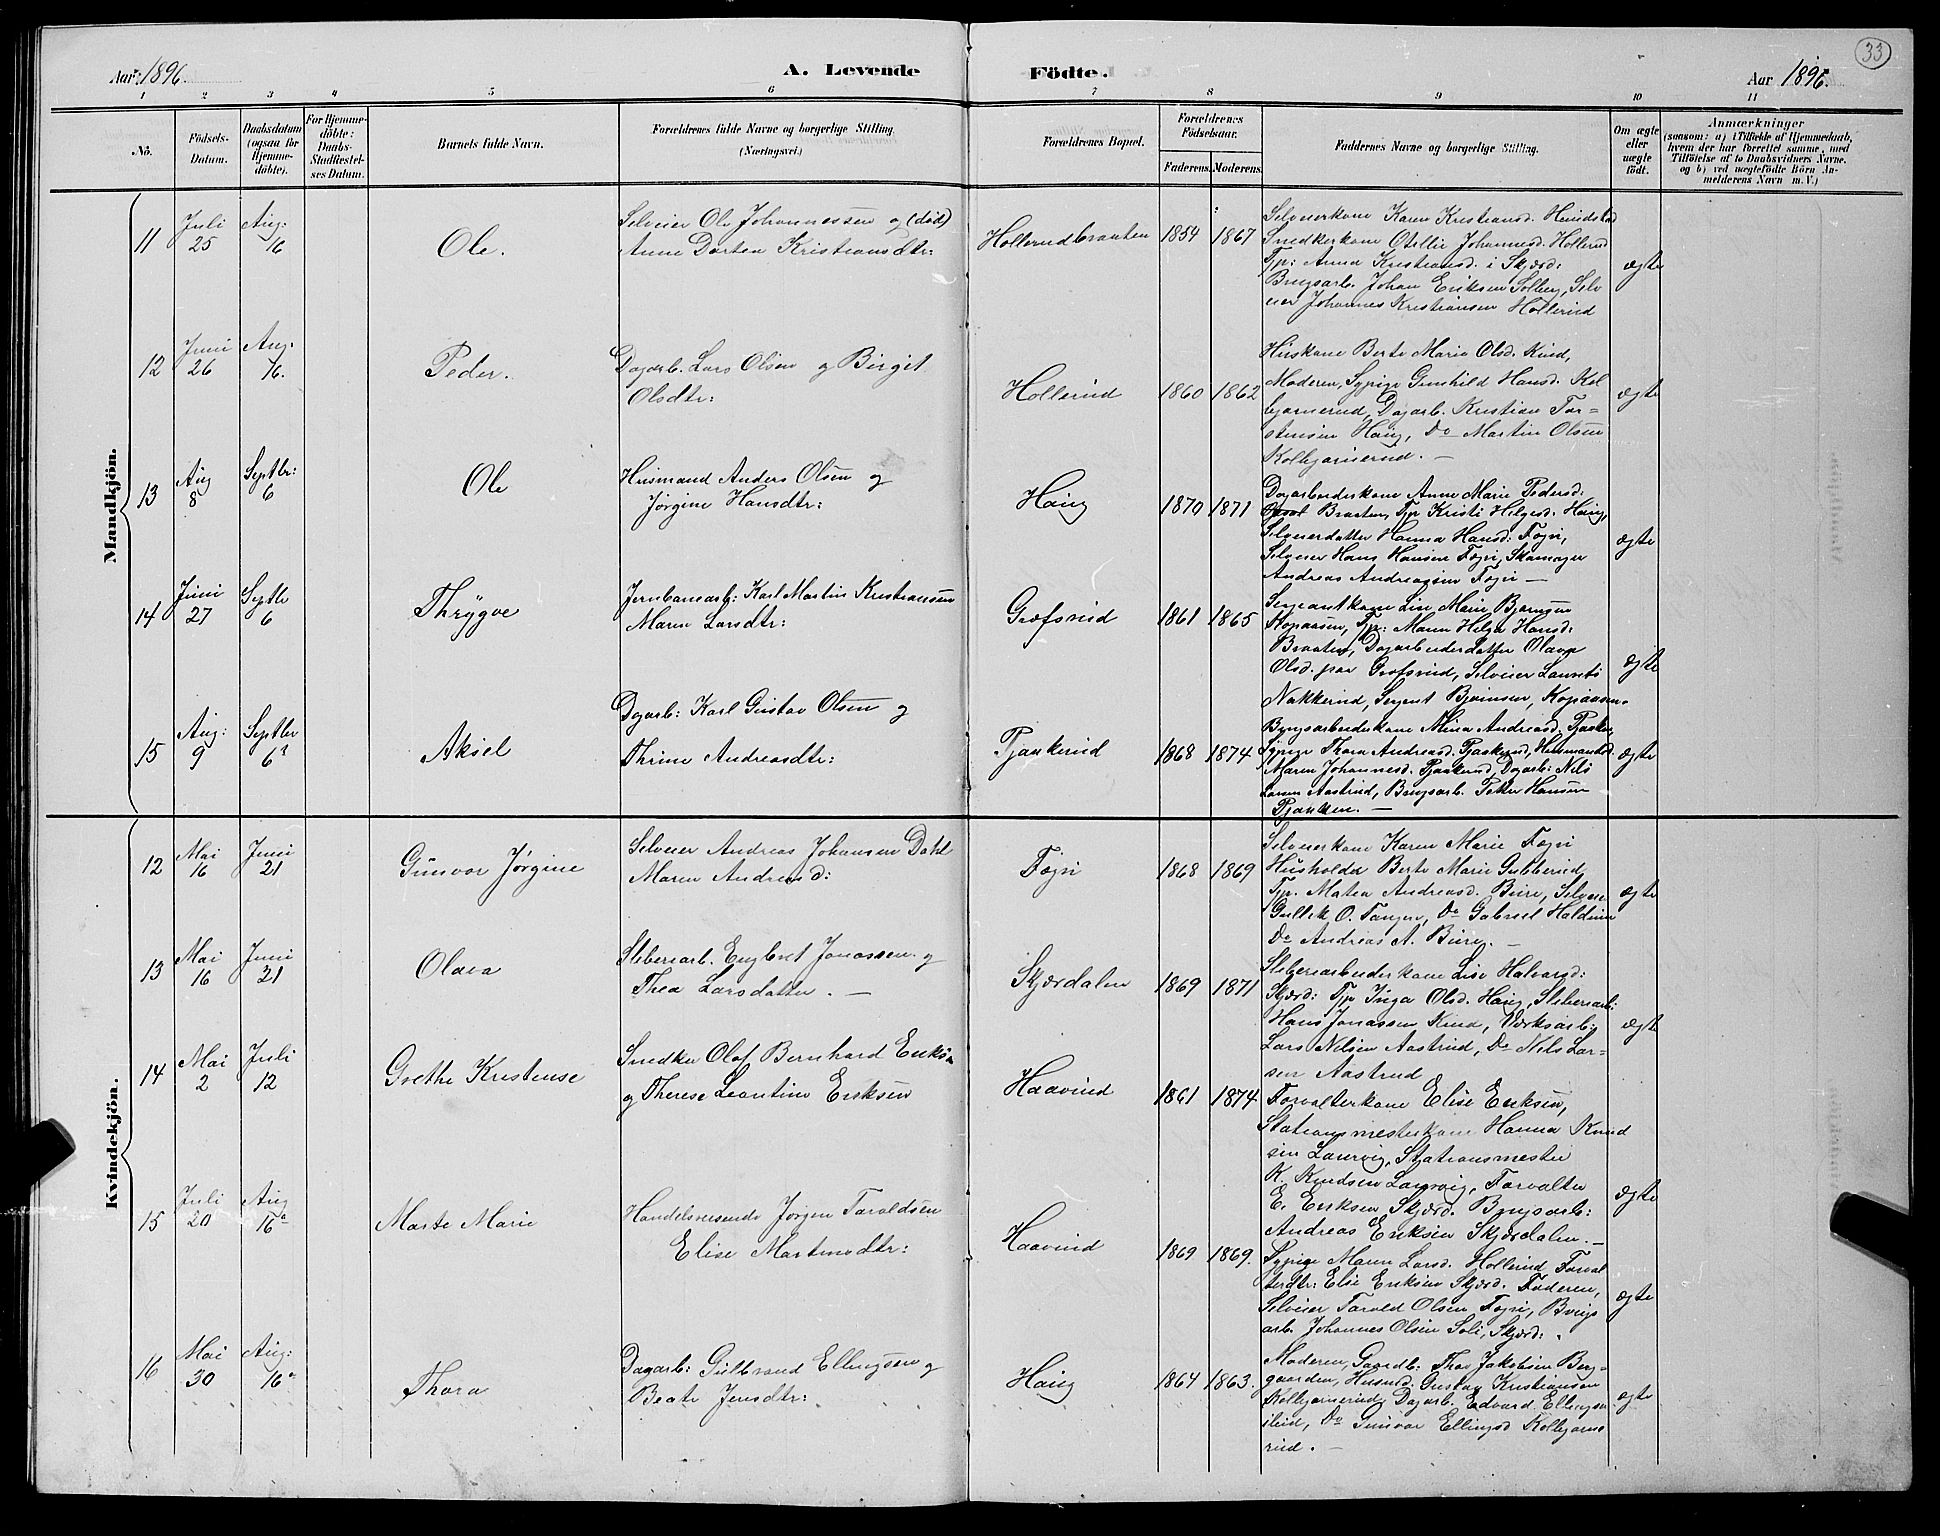 33
Aar: 1896.
A. Levende
Födte.
Aar 1896.
1 2 3 4 5 6 7 8 9 10 11
No.
Födsels-
Datum.
Daabsdatum
(ogsaa for
Hjemme-
döbte).
For Hjemme-
döbte:
Daabs-
Stadfæstel-
ses Datum.
Barnets fulde Navn.
Forældrenes fulde Navne og borgerlige Stilling.
(Næringsvei.)
Forældrenes Bopæl.
Forældrenes
Födselsaar.
Faderens. Moderens.
Faddernes Navne og borgerlige Stilling.
Om ægte
eller
uægte
födt.
Anmærkninger
(saasom: a) i Tilfælde af Hjemmedaab,
hvem der har forrettet samme, med
Tilföielse af to Daabsvidners Navne,
og b) ved uægtefödte Börn An-
melderens Navn m. V.)
Mandkjön.
11
Juli
25
Aug:
16
Ole.
Selveier Ole Johannessen og (död)
Anne Dortea Kristiansdtr:
Hollerudbraaten
1854 1867
Selveierkone Karen Kristiansd. Hundstad
Snedkerkone Otellie Johannesd. Hollerud
Tjp: Anna Kristiansd. i Skjærd:
Brugsarb. Johan Eriksen Solberg, Selv
eier Johannes Kristiansen Hollerud
ægte
12
Juni
26
Aug.
16.
Peder.
Dagarb. Lars Olsen og Birgit
Olsdtr:
Hollerud
1860 1862
Huskone Berte Marie Olsd. Rud,
Moderen, Sypige Gunhild Hansd. Kol
bjørnerud, Dagarb. Kristian Tor-
stensen Haug, Do Martin Olsen
Kolbjørnerud. —
ægte
13
Aug
8
Septbr:
6
Ole
Husmand Anders Olsen og
Jørgine Hansdtr:
Haug
1870 1871
Dagarbeiderkone Anne Marie Pedersd.
Braaten, Tjp Kristi Helgesd. Haug,
Selveierdatter Hanna Hansd. Fogn,
Selveier Hans Hansen Fogn, Skomager
Andreas Andreassen Fogn —
ægte
14
Juni
27
Septbr
6
Thrygve
Jernbanearb: Karl Martin Kristiansen
Maren Larsdtr:
Grøfsrud
1861 1865
Sergeantkone Lise Marie Bjørnsen
Kopaasen, Tjp: Maren Helga Hansd:
Braaten, Dagarbeiderdatter Olava
Olsd. paa Grøfsrud, Selveier Laurits
Nakkerud, Sergent Bjørnsen, Kopaasen.
ægte
15
Aug:
9
Septbr
6
Aksel
Dagarb: Karl Gustav Olsen og
Thrine Andreasdtr:
Pjaakerud
1868 1874
Brugsarbeiderkone Mina Andreasd. Pjaaken,
Sypige Thora Andreasd. Pjaakerud, Husmandsd.
Maren Johannesd. Pjaakerud, Dagarb: Nils
Larsen Aastrud, Brugsarb. Petter Hansen
Pjaaken. —
ægte
Kvindekjön.
12
Mai
16
Juni
21
Gunvor Jørgine
Selveier Andreas Johansen Dahl
Maren Andreasd:
Fogn
1868 1869
Selveierkone Karen Marie Fogn
Husholder Berte Marie Gubberud,
Tjp. Matea Andreasd. Bure, Selveier
Gullik O. Tangen, Do Gabriel Haldum
Do Andreas A. Bure. —
ægte
13
Mai
16
Juni
21
Olava
Sliberiarb. Engbret Jonassen og
Thea Larsdatter. —
Skjærdalen
1869 1871
Sliberiarbeiderkone Lise Halvorsd:
Skjærd: Tjp Inga Olsd. Haug, Sliberiarb:
Hans Jonassen Rud, Værksarb:
Lars Nilsen Aastrud, Do Nils Lar-
sen Aastrud
ægte
14
Mai
2
Juli
12
Grethe Kristense
Snedker Olaf Bernhard Eriksen
og Therese Leontine Eriksen
Haavrud
1861 1874
Forvalterkone Elise Eriksen,
Stationsmesterkone Hanna Knud
sen Laurvig, Stationsmester
K. Knudsen Laurvig, Forvalter
E. Eriksen Skjærd. Brugsarb:
Andreas Eriksen Skjærdalen. —
ægte
15
Juli
20
Aug
16
Marte Marie
Handelsreisende Jørgen Taraldsen
Elise Martinsdtr:
Haavrud
1869 1869.
Sypige Maren Larsd. Hollerud, Forval
terdtr: Elise Eriksen Skjærd. Faderen,
Selveier Tarald Olsen Fogn, Brugs
arb. Johannes Olsen Soli, Skjærd:.
ægte
16
Mai
30
Aug:
16
Thora
Dagarb: Gulbrand Ellingsen og
Beate Jensdtr:
Haug
1864 1863.
Moderen, Gaardb: Thov Jakobsen Berg-
gaarden, Husmd: Gustav Kristiansen
Kolbjørnerud, Dagarb. Edvard Ellingsen
Do Gunvor Ellingsd Kolbjørne
rud. —
ægte